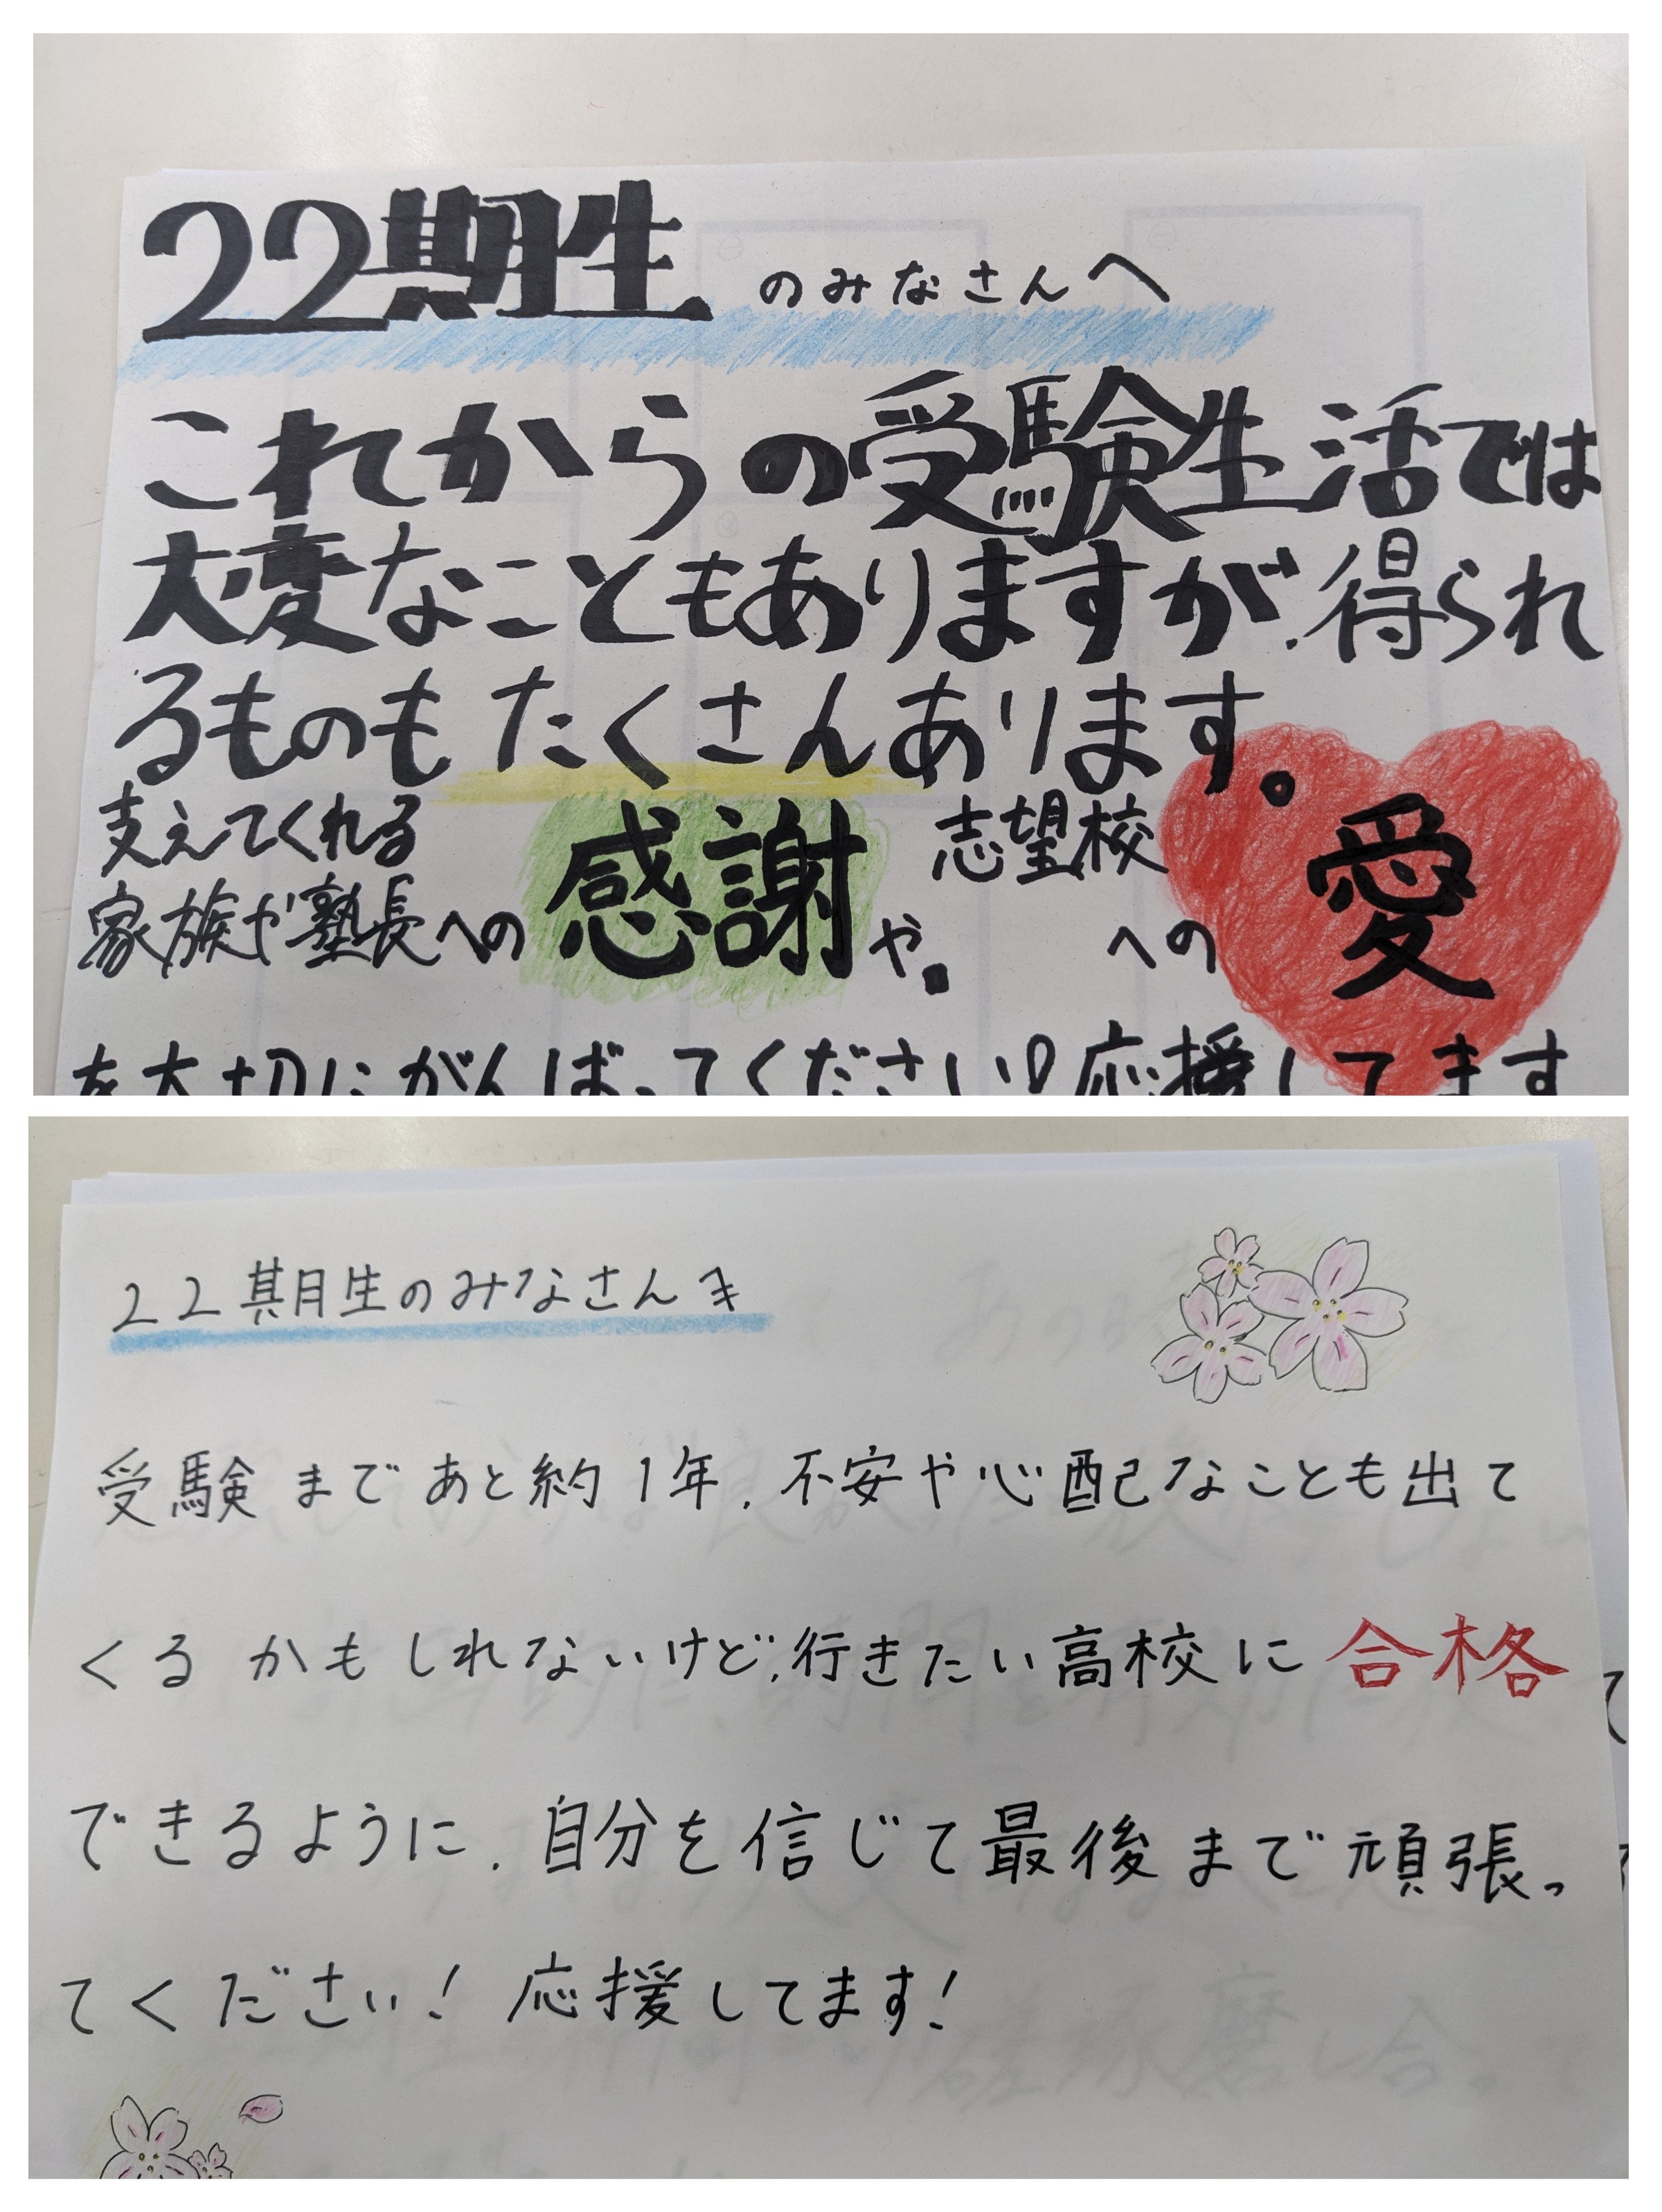 22期生のみなさんへ
これからの受験生活では
大変なこともありますが、得られ
るものもたくさんあります。
支えてくれる
家族や塾長への感謝や、
志望校
への愛
を大切にがんばってください!応援してます
22期生のみなさんへ
受験まであと約1年、不安や心配なことも出て
くるかもしれないけど、行きたい高校に合格
できるように、自分を信じて最後まで頑張っ
てください!応援してます!